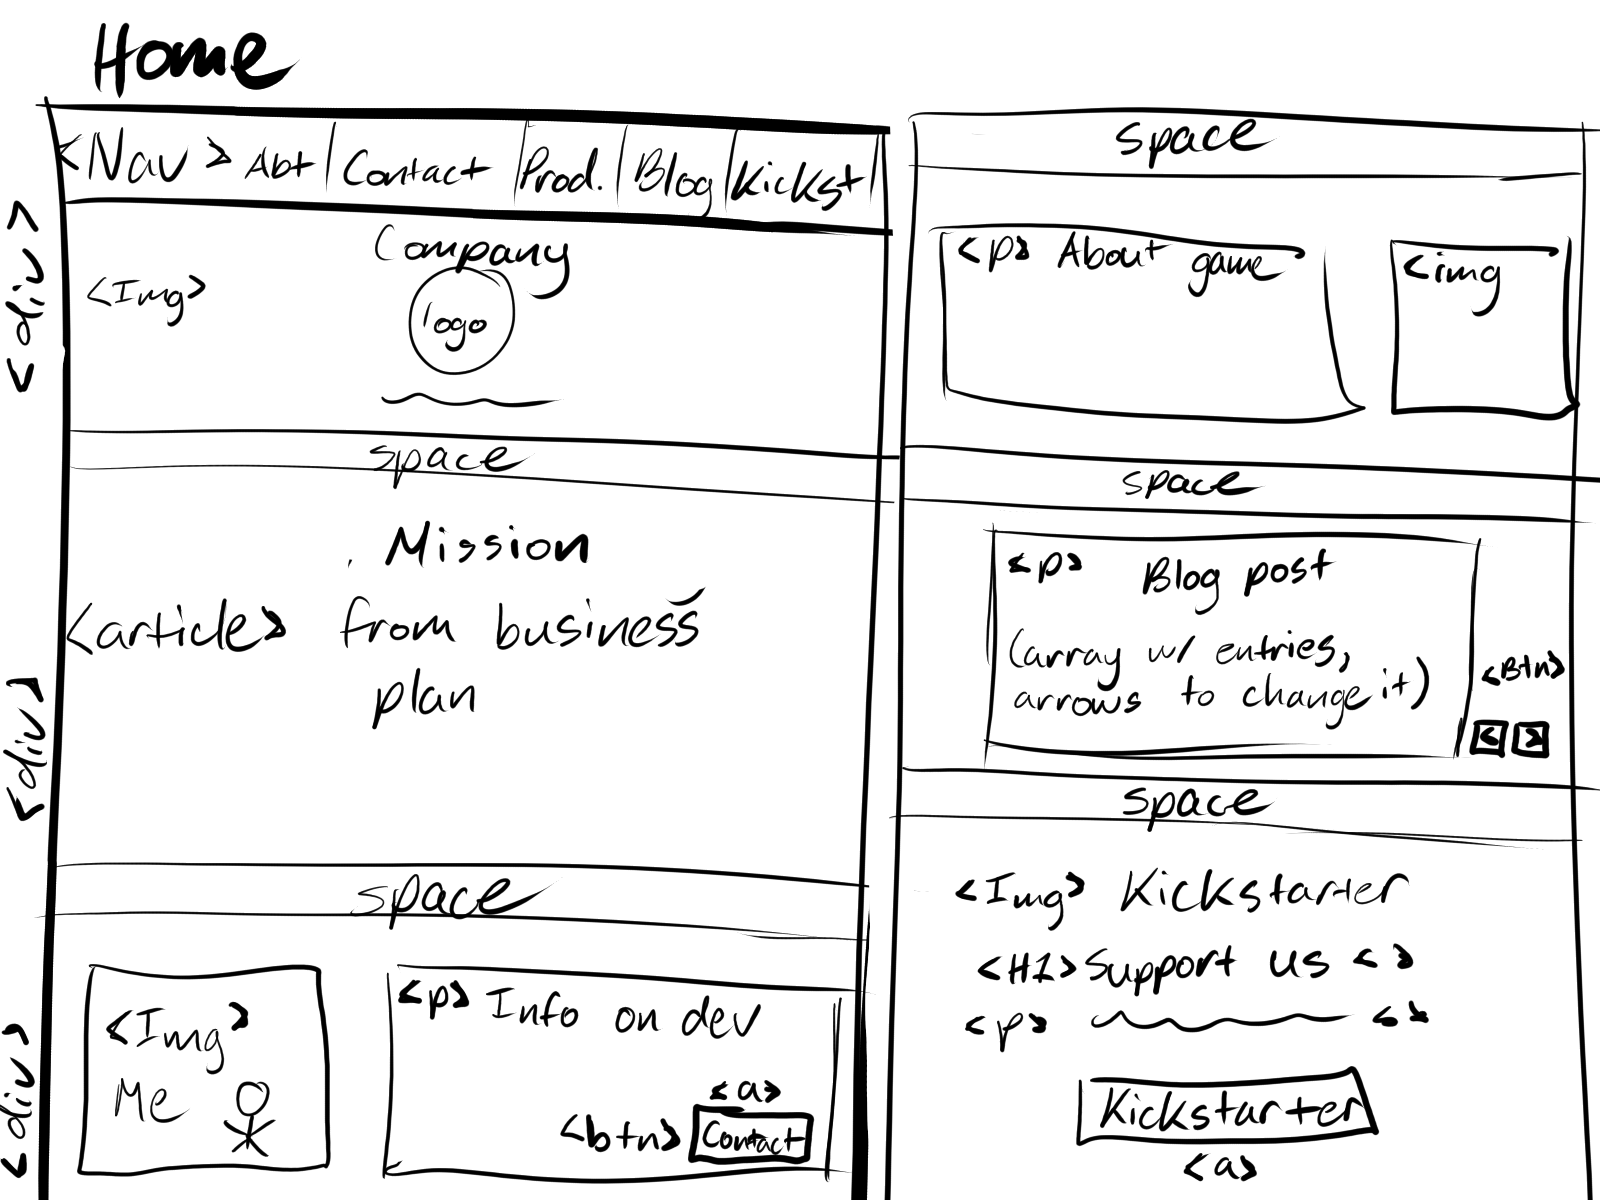 Home
<Nav> Abt | Contact | Prod. | Blog | Kickst |
<div>
Company
<Img>
logo
space
Mission
<article> from business
plan
<div>
space
<Img>
Me
<p> Info on dev
<a>
<btn> Contact
<div>
space
<p> About game
<img
space
<p> Blog post
(array w/ entries,
arrows to change it)
<Btn>
< >
space
<Img> Kickstarter
<H1> Support us < >
<p> < >
Kickstarter
<a>